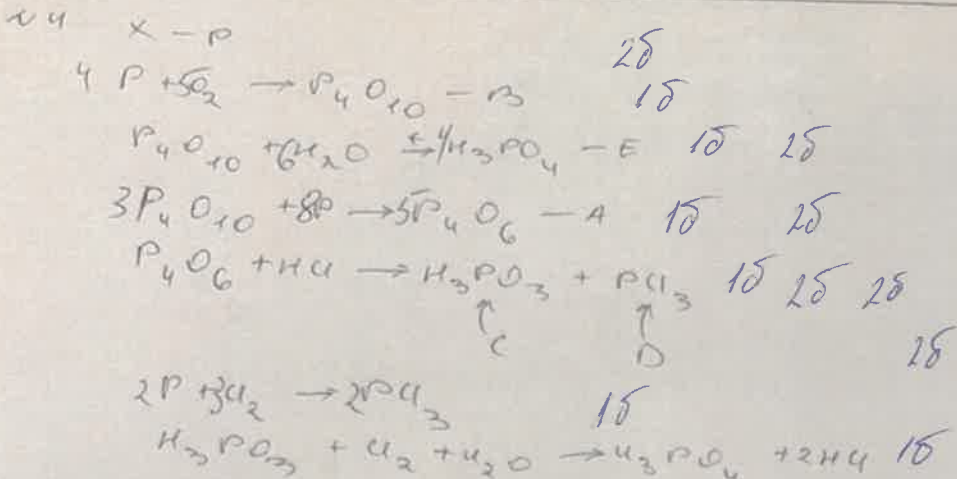 № 4 X - P
4 P + 5O₂ → P₄O₁₀ - B 2б 1б
P₄O₁₀ + 6H₂O → 4H₃PO₄ - E 1б 2б
3P₄O₁₀ + 8P → 5P₄O₆ - A 1б 2б
P₄O₆ + HCl → H₃PO₃ + PCl₃ 1б 2б 2б
↑ ↑
C D 2б
2P + 3Cl₂ → 2PCl₃ 1б
H₃PO₃ + Cl₂ + H₂O → H₃PO₄ + 2HCl 1б